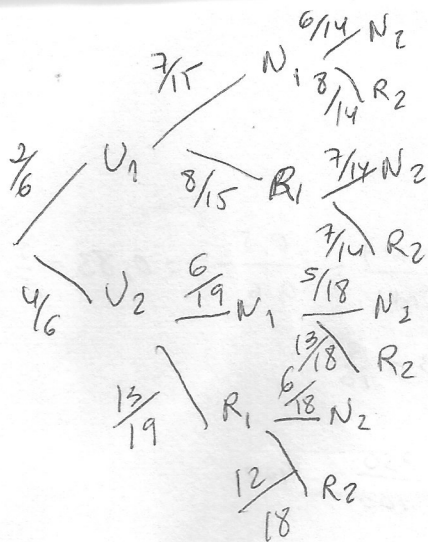 6/14 N₂
7/15 N₁
8/14 R₂
2/6 U₁
8/15 R₁ 7/14 N₂
7/14 R₂
4/6 U₂ 6/19 N₁ 5/18 N₂
13/18 R₂
13/19 R₁ 6/18 N₂
12/18 R₂